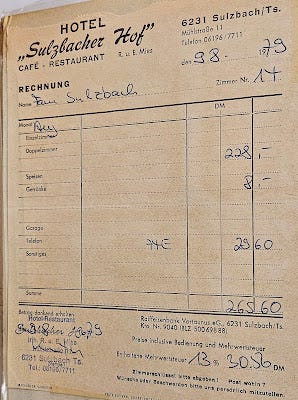 HOTEL
„Sulzbacher Hof"
CAFÉ - RESTAURANT
R. u. E. Miss
6231 Sulzbach/Ts.
Mühlstraße 11
Telefon 06196/7711
den 9 8. 1979
RECHNUNG
Zimmer Nr. 14
Name Sulzbach
DM
Monat Aug
Einzelzimmer
Doppelzimmer 228,-
Speisen
Getränke 8,-
Garage
Telefon 29 60
Sonstiges
Summe 265 60
Betrag dankend erhalten
Hotel-Restaurant
Sulzbacher Hof
Inh. R. u. E. Miss
6231 Sulzbach/Ts.
Tel.: 06196/7711
Raiffeisenbank Vortaunus eG., 6231 Sulzbach/Ts.
Kto. Nr. 9040 (BLZ 50069888)
Preise inklusive Bedienung und Mehrwertsteuer
Enthaltene Mehrwertsteuer 13 % 30.56 DM
Zimmerschlüssel bitte abgeben! Post wohin?
Wünsche oder Beschwerden bitte uns persönlich mitzuteilen.